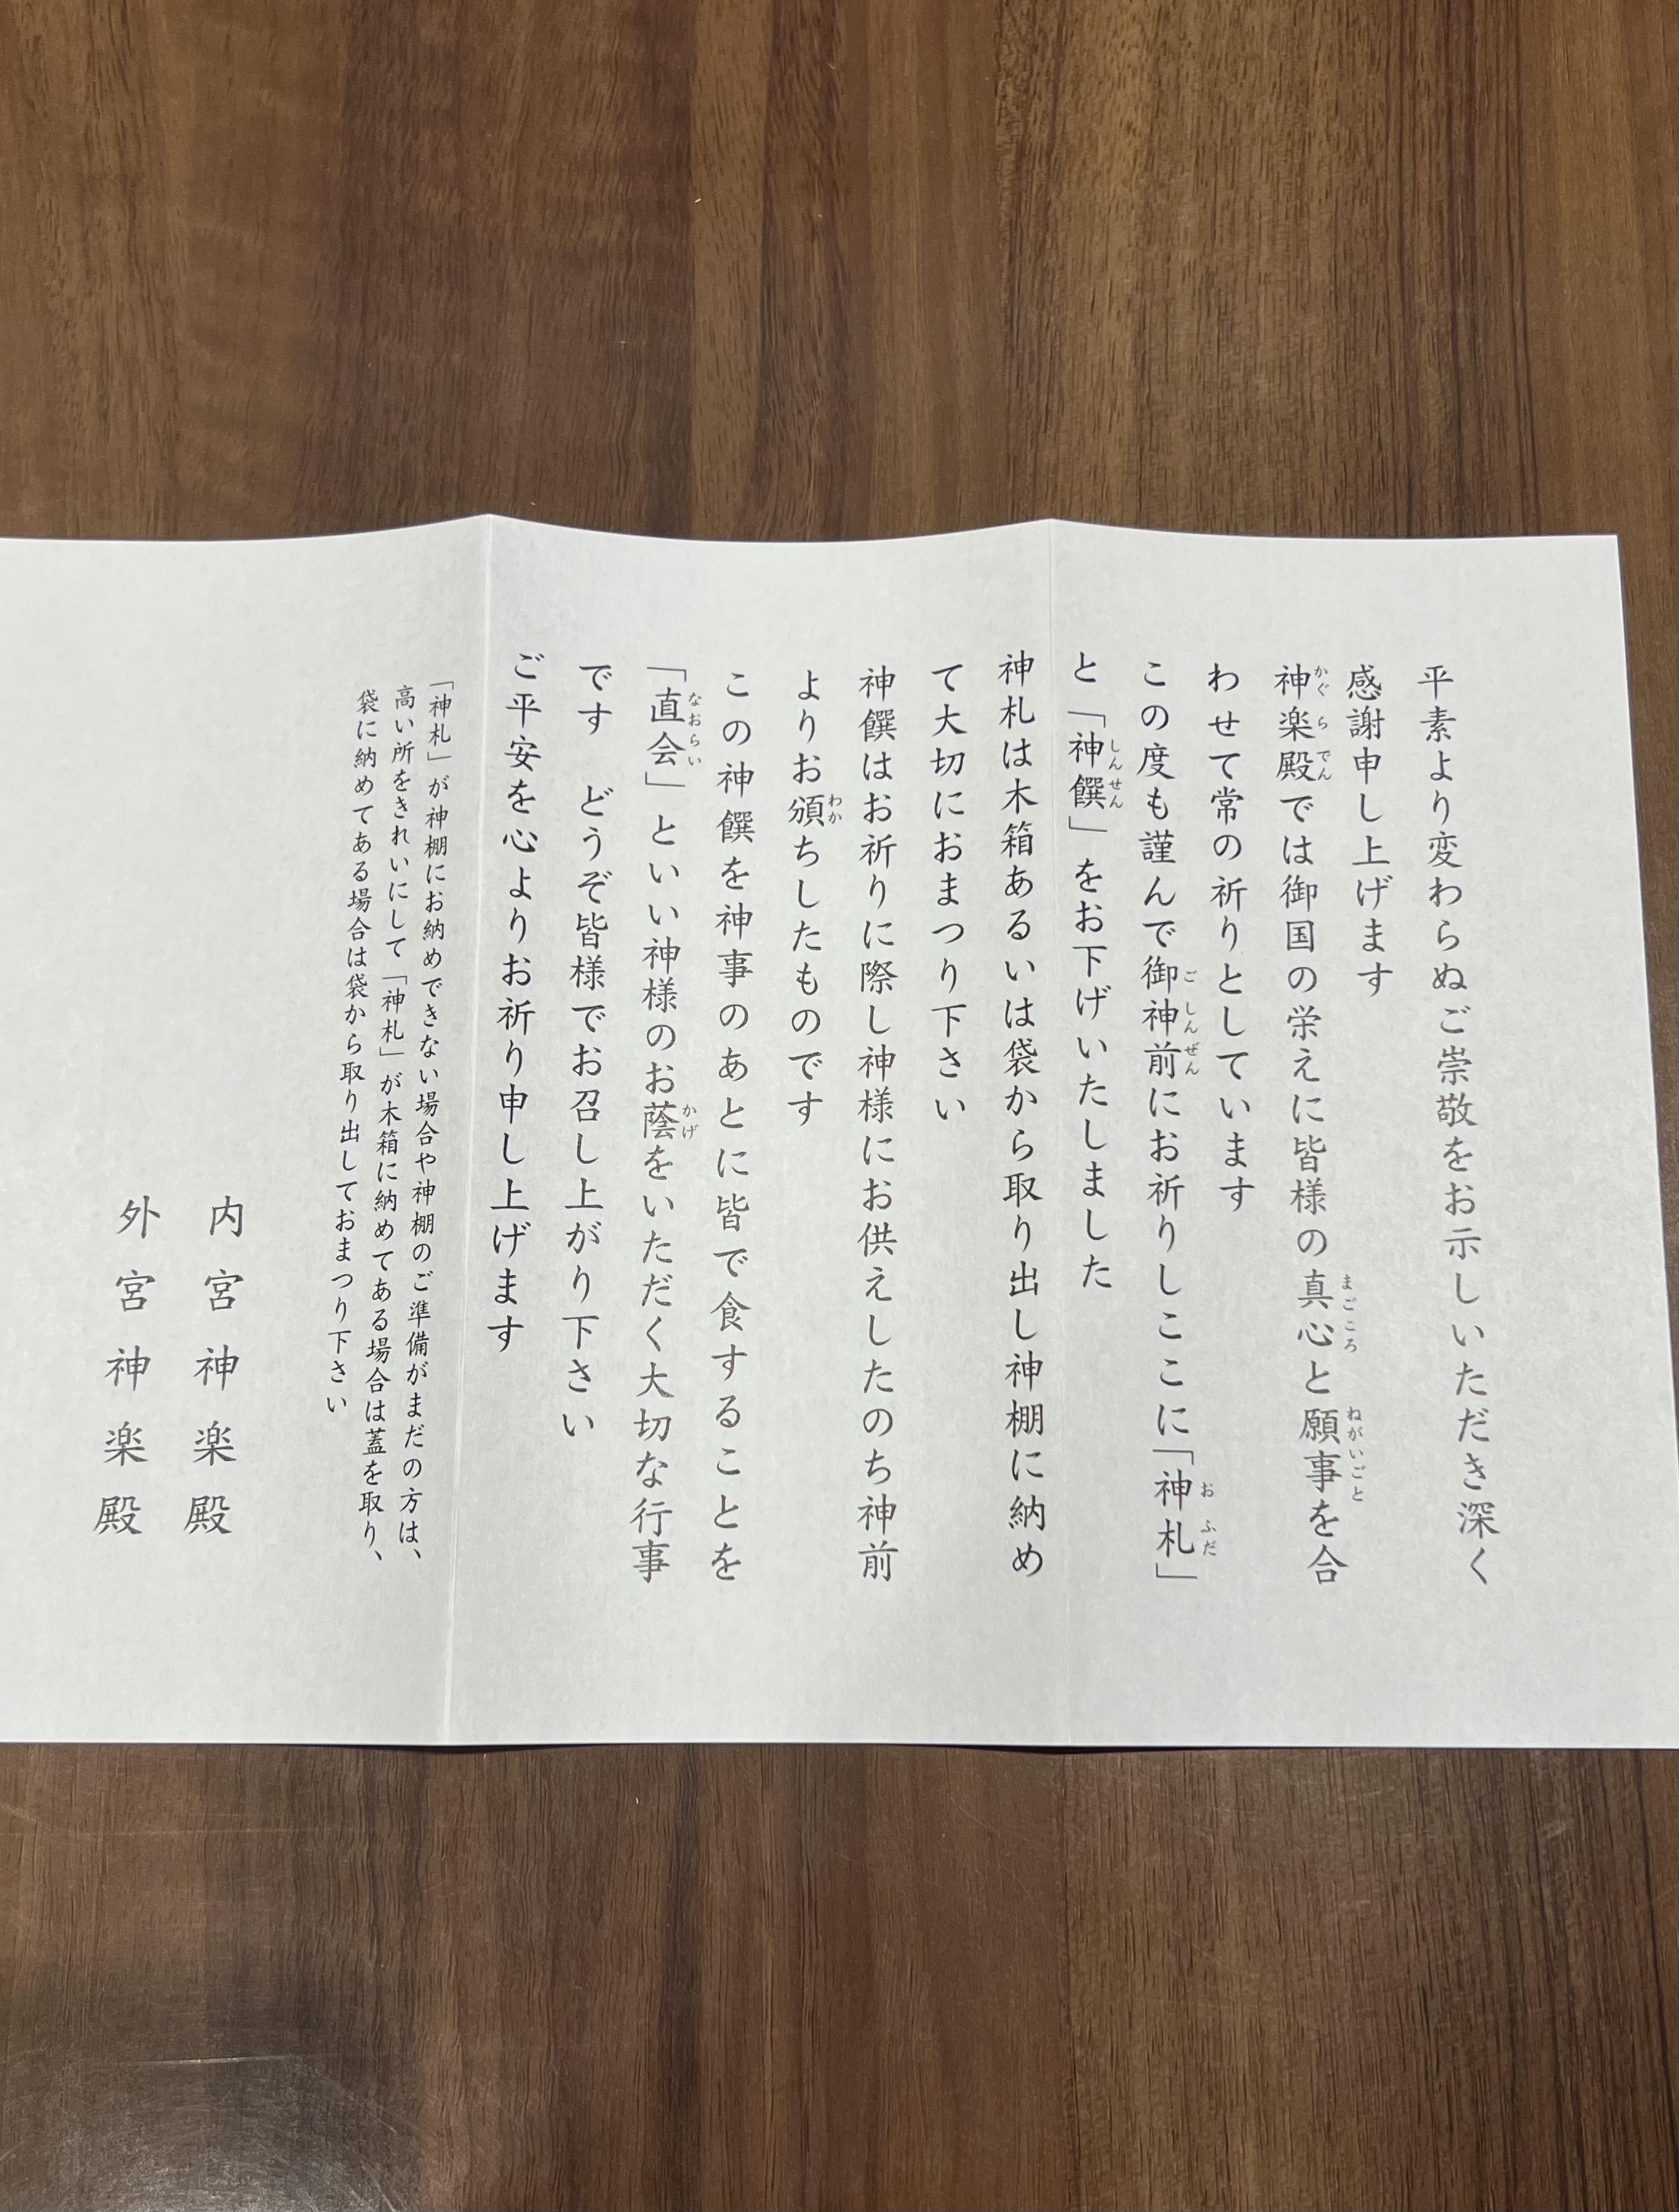 平素より変わらぬご崇敬をお示しいただき深く
感謝申し上げます
神楽殿では御国の栄えに皆様の真心と願事を合
わせて常の祈りとしています
この度も謹んで御神前にお祈りしここに「神札」
と「神饌」をお下げいたしました
神札は木箱あるいは袋から取り出し神棚に納め
て大切におまつり下さい
神饌はお祈りに際し神様にお供えしたのち神前
よりお頒ちしたものです
この神饌を神事のあとに皆で食することを
「直会」といい神様のお蔭をいただく大切な行事
です　どうぞ皆様でお召し上がり下さい
ご平安を心よりお祈り申し上げます
「神札」が神棚にお納めできない場合や神棚のご準備がまだの方は、
高い所をきれいにして「神札」が木箱に納めてある場合は蓋を取り、
袋に納めてある場合は袋から取り出しておまつり下さい
内宮神楽殿
外宮神楽殿